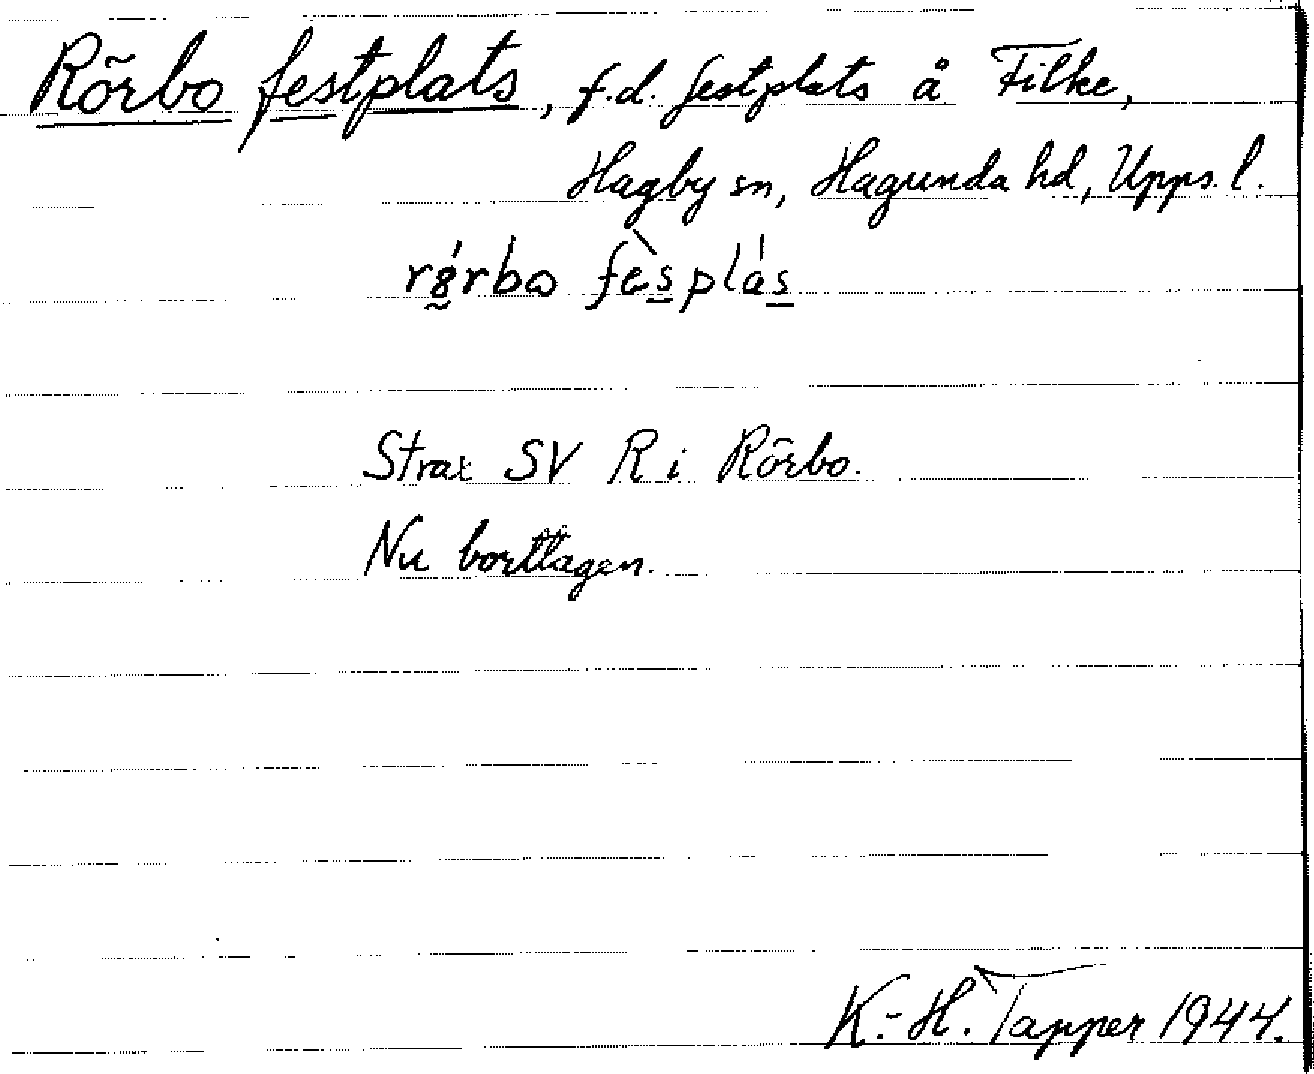 Rörbo festplats, f.d. festplats å Filke,
Hagby sn, Hagunda hd, Upps. l.
Strax SV R i Rörbo.
Nu borttagen.
K.-H. Tapper 1944.